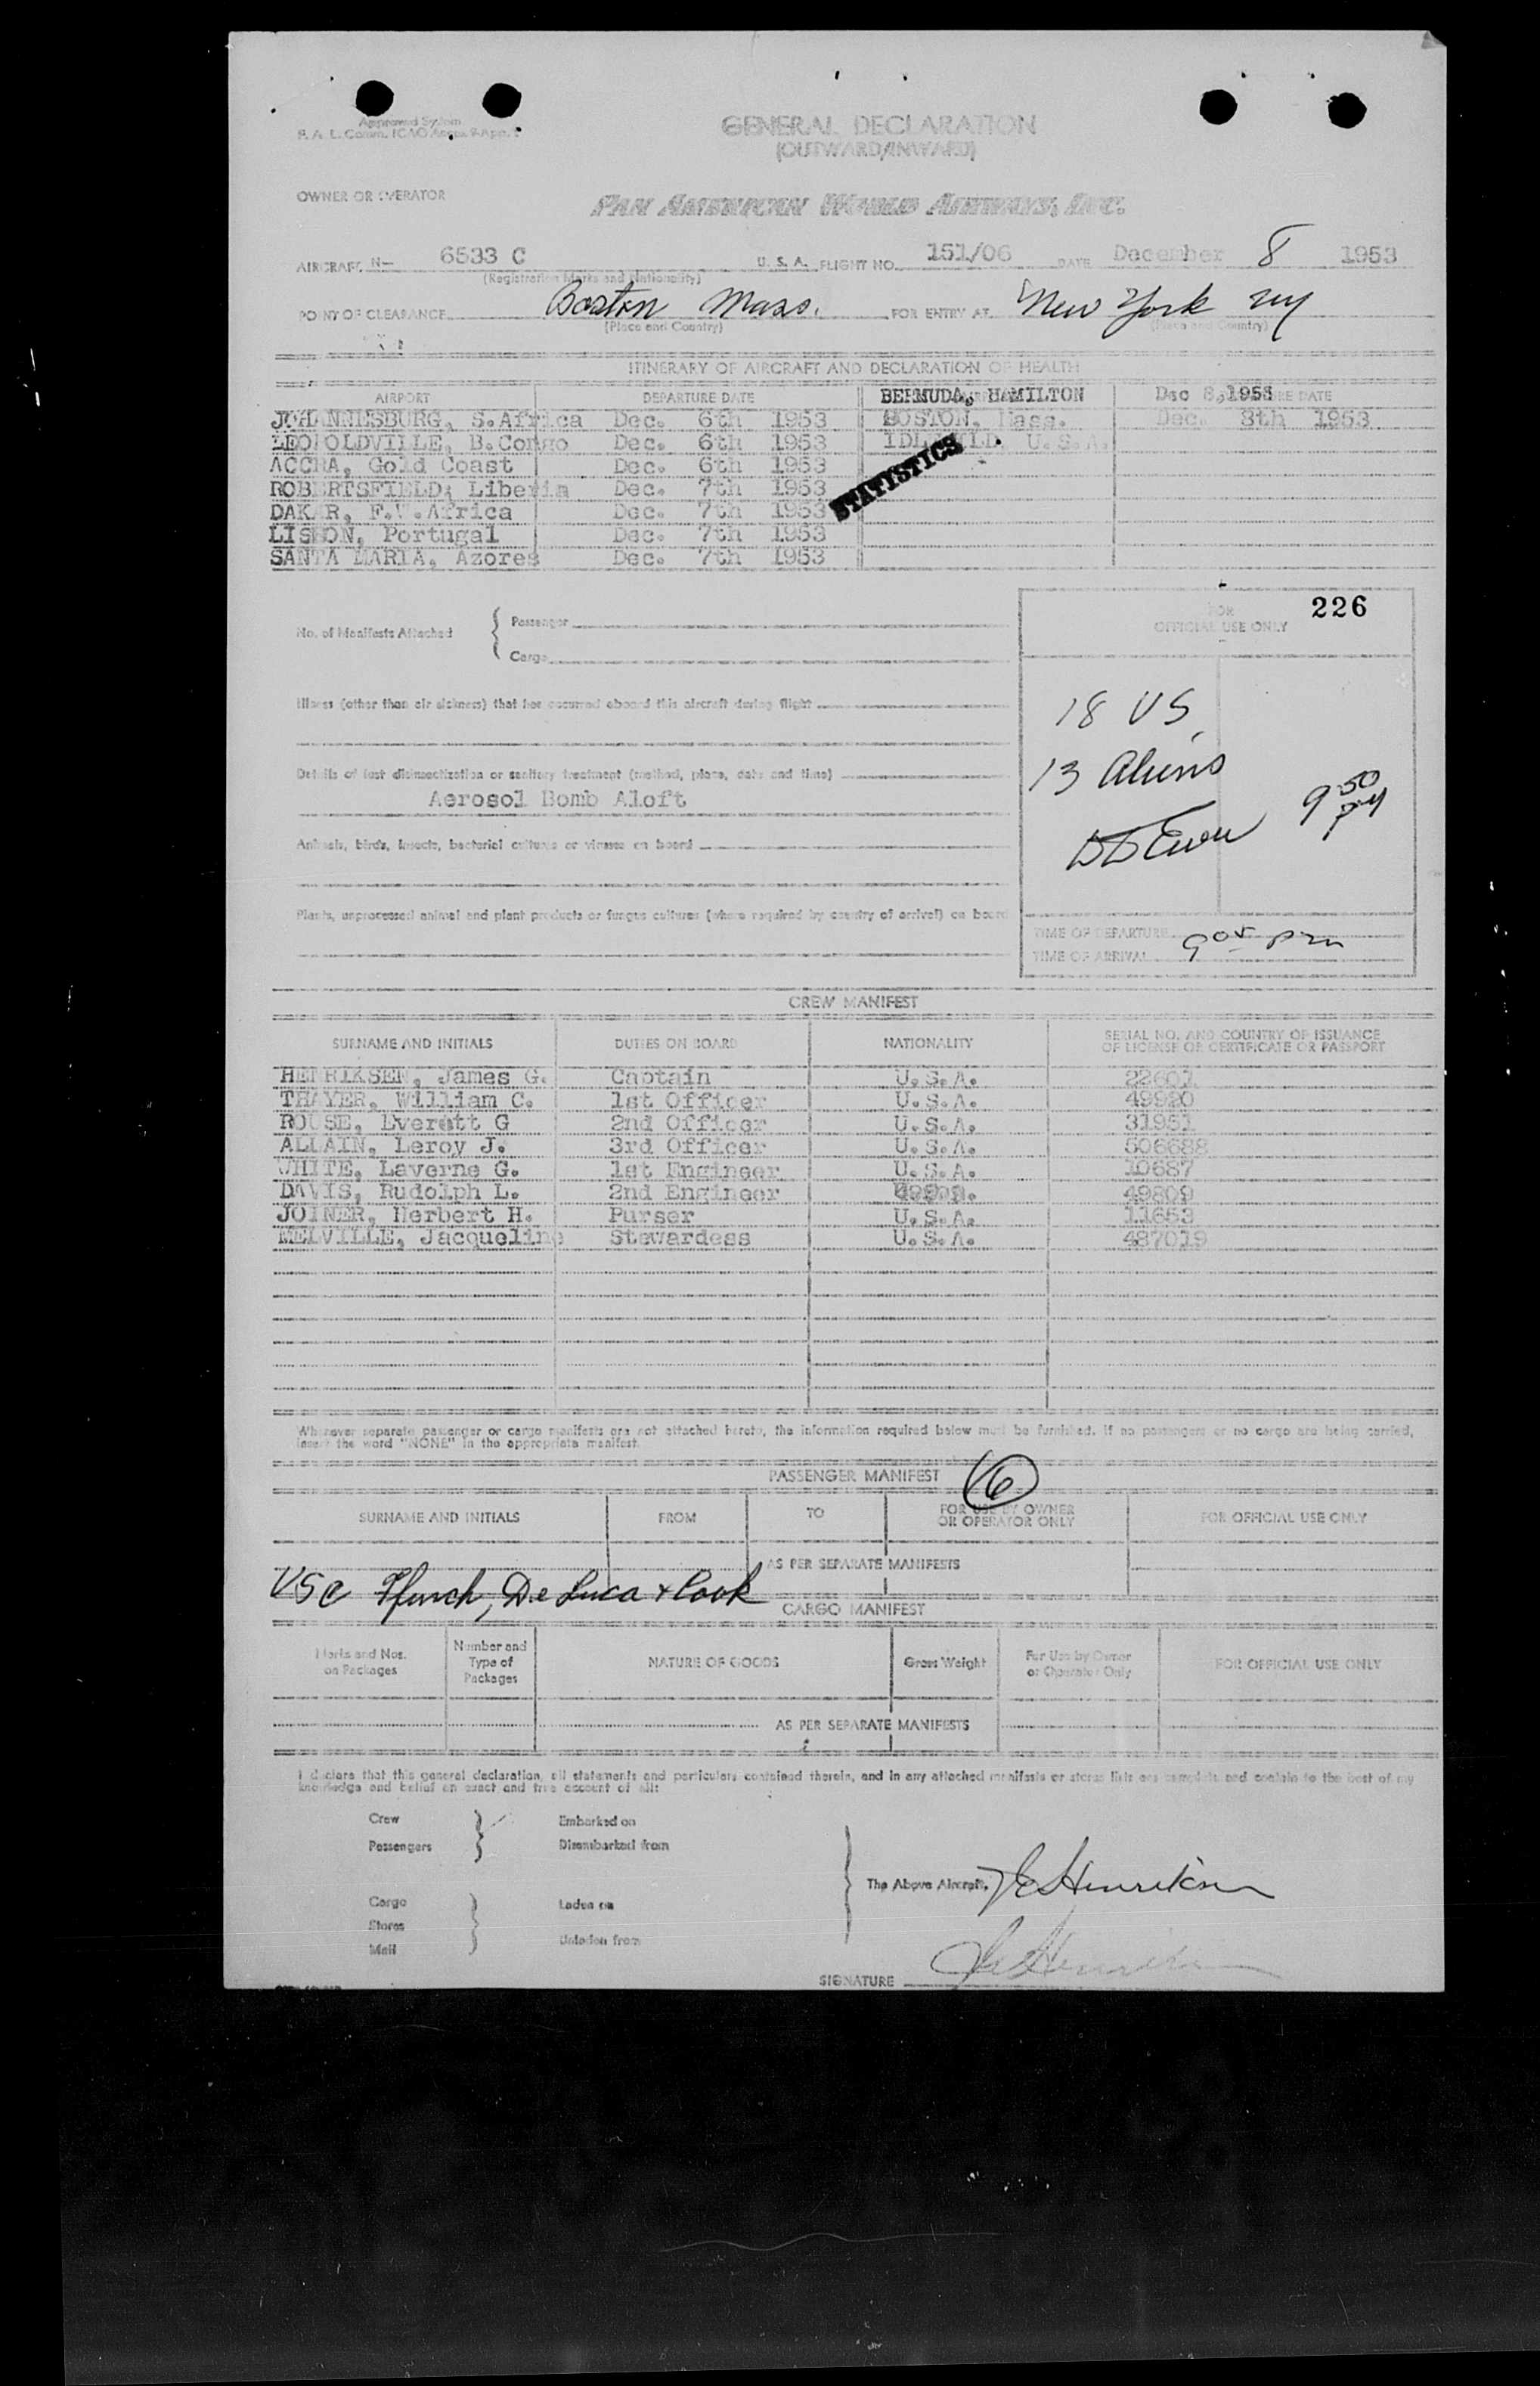 Approved System
F. A. L. Comm. ICAO Annex 9-App. 1
GENERAL DECLARATION
(OUTWARD/INWARD)
OWNER OR OPERATOR
PAN AMERICAN WORLD AIRWAYS, INC.
AIRCRAFT N- 6533 C U. S. A. FLIGHT NO. 151/06 DATE December 8 1953
(Registration Marks and Nationality)
POINT OF CLEARANCE Boston Mass. FOR ENTRY AT New York NY
(Place and Country) (Place and Country)
ITINERARY OF AIRCRAFT AND DECLARATION OF HEALTH
AIRPORT DEPARTURE DATE BERMUDA, HAMILTON Dec 8, 1953 DEPARTURE DATE
JOHANNESBURG, S.Africa Dec. 6th 1953 BOSTON, Mass. Dec. 8th 1953
LEOPOLDVILLE, B.Congo Dec. 6th 1953 IDLEWILD, U.S.A.
ACCRA, Gold Coast Dec. 6th 1953
ROBERTSFIELD, Liberia Dec. 7th 1953
STATISTICS
DAKAR, F.W.Africa Dec. 7th 1953
LISBON, Portugal Dec. 7th 1953
SANTA MARIA, Azores Dec. 7th 1953
FOR OFFICIAL USE ONLY 226
No. of Manifests Attached { Passenger
Cargo
Illness (other than air sickness) that has occurred aboard this aircraft during flight
18 US
Details of last disinsectization or sanitary treatment (method, place, date and time)
13 Aliens
Aerosol Bomb Aloft
9 50 PM
Animals, birds, insects, bacterial cultures or viruses on board
Plants, unprocessed animal and plant products or fungus cultures (where required by country of arrival) on board
TIME OF DEPARTURE
9 05 pm
TIME OF ARRIVAL
CREW MANIFEST
SURNAME AND INITIALS DUTIES ON BOARD NATIONALITY SERIAL NO. AND COUNTRY OF ISSUANCE OF LICENSE OR CERTIFICATE OR PASSPORT
HENRIKSEN, James G. Captain U.S.A. 22607
THAYER, William C. 1st Officer U.S.A. 49920
ROUSE, Everett G 2nd Officer U.S.A. 31951
ALLAIN, Leroy J. 3rd Officer U.S.A. 506688
WHITE, Laverne G. 1st Engineer U.S.A. 10687
DAVIS, Rudolph L. 2nd Engineer 49809
JOINER, Herbert H. Purser U.S.A. 11653
MELVILLE, Jacqueline Stewardess U.S.A. 487019
Whenever separate passenger or cargo manifests are not attached hereto, the information required below must be furnished. If no passengers or no cargo are being carried,
insert the word "NONE" in the appropriate manifest.
PASSENGER MANIFEST 16
SURNAME AND INITIALS FROM TO FOR USE BY OWNER OR OPERATOR ONLY FOR OFFICIAL USE ONLY
AS PER SEPARATE MANIFESTS
De Luca + Cook
CARGO MANIFEST
Marks and Nos. on Packages Number and Type of Packages NATURE OF GOODS Gross Weight For Use by Owner or Operator Only FOR OFFICIAL USE ONLY
AS PER SEPARATE MANIFESTS
I declare that this general declaration, all statements and particulars contained therein, and in any attached manifests or stores lists are complete and contain to the best of my
knowledge and belief an exact and true account of all:
Crew Embarked on
Passengers Disembarked from
The Above Aircraft. Henriksen
Cargo Laden on
Stores
Mail Unladen from
SIGNATURE Henriksen